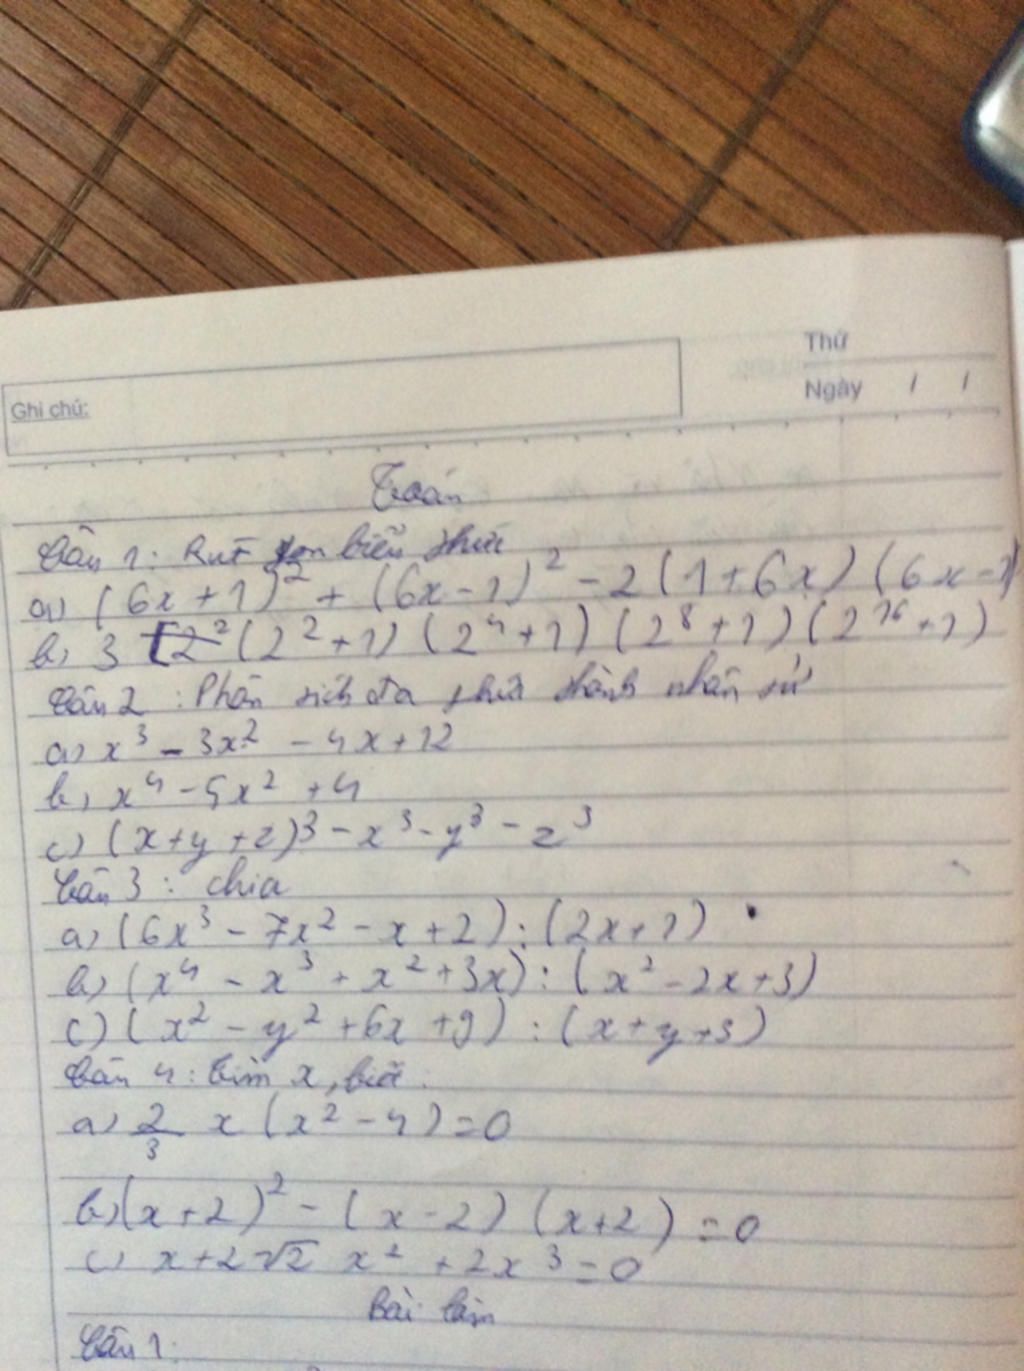 Thứ
Ngày / /
Ghi chú:
Toán
Câu 1: Rút gọn biểu thức
a) (6x+1)² + (6x-1)² - 2(1+6x)(6x-1)
b) 3 (2²+1)(2⁴+1)(2⁸+1)(2¹⁶+1)
Câu 2: Phân tích đa thức thành nhân tử
a) x³ - 3x² - 4x + 12
b) x⁴ - 5x² + 4
c) (x+y+z)³ - x³ - y³ - z³
Câu 3: chia
a) (6x³ - 7x² - x + 2) : (2x+1)
b) (x⁴ - x³ + x² + 3x) : (x² - 2x + 3)
c) (x² - y² + 6x + 9) : (x + y + 3)
Câu 4: Tìm x, biết:
a) 2/3 x (x² - 4) = 0
b) (x+2)² - (x-2)(x+2) = 0
c) x + 2√2 x² + 2x³ = 0
Bài làm
Câu 1: